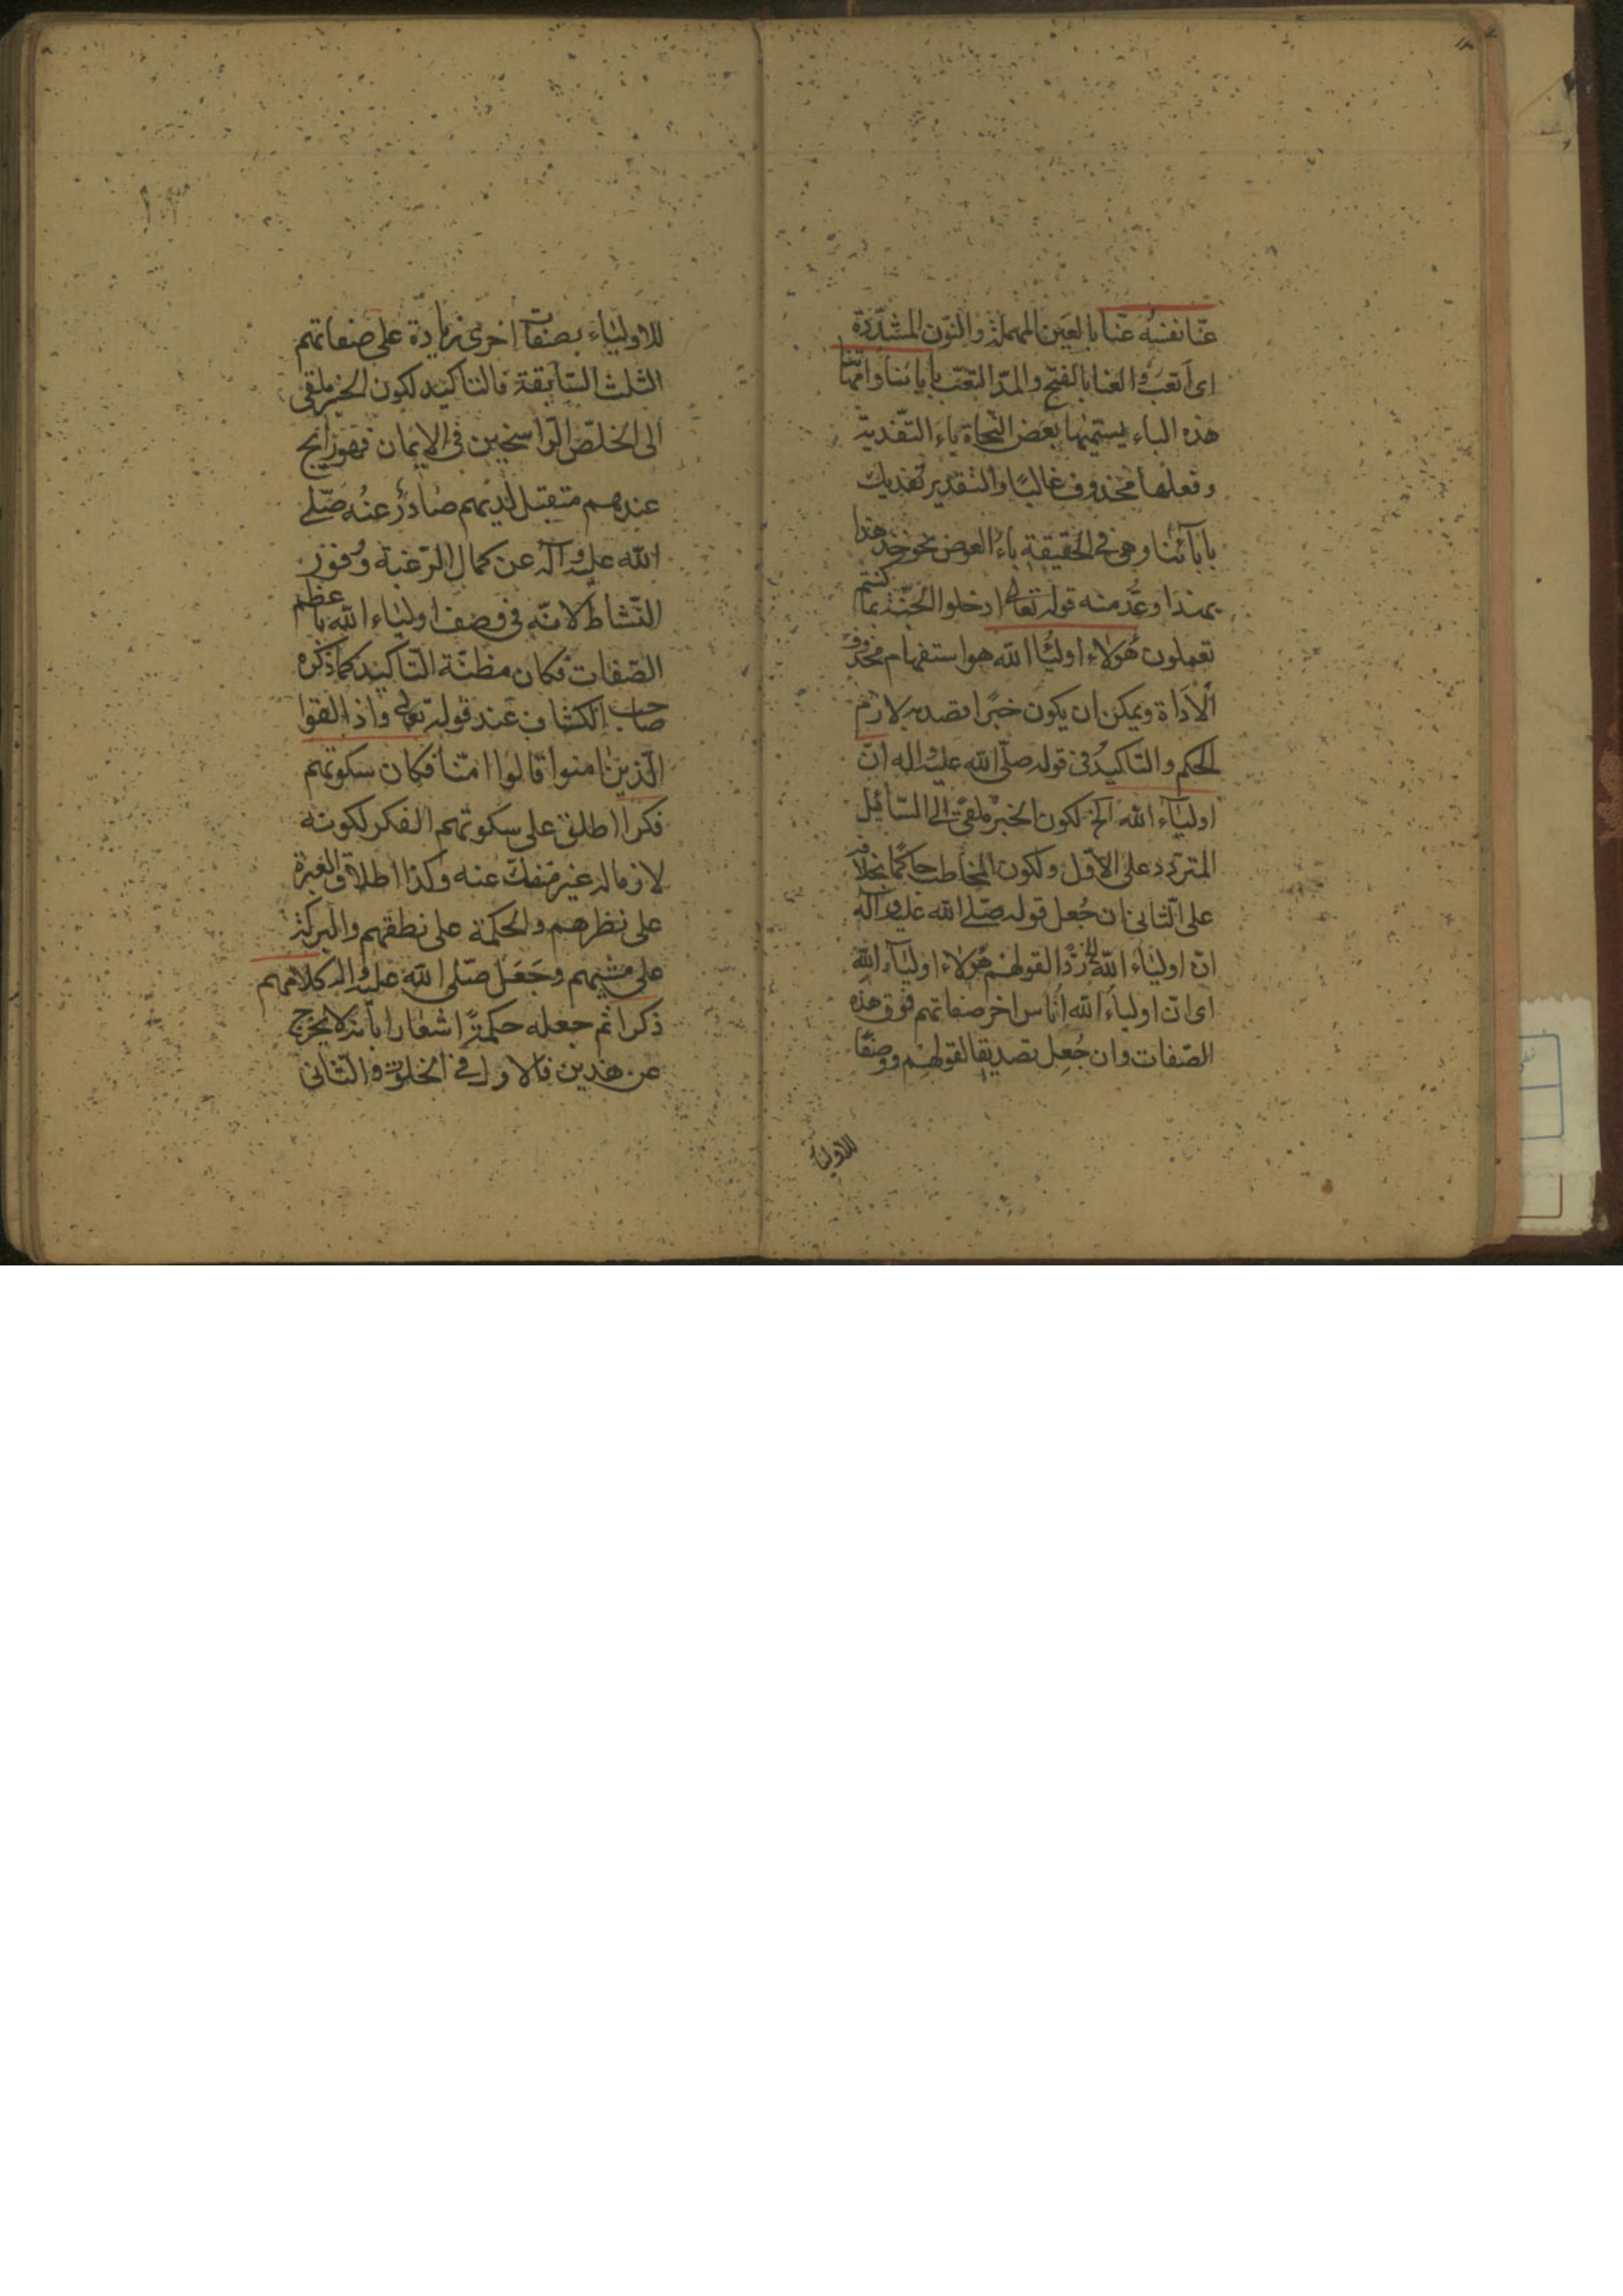 عنّا نفسُه عنّا بالعَين المهملة والنّون المشدّدة
اى اَتعَبَ والعَنا بالفتح والمدّ التعَب بابائنا وامّهاتنا
هذه الباء يسمّيها بعض النحاة باءَ التّفدية
وفعلها محذوف غالبًا والتقدير نُفديك
بآبائنا وهى فى الحقيقة باءُ العوض نحو خذ هذا
بهذا وعُدّ منه قوله تعالى ادخلوا الجنّة بما كنتم
تعملون هؤلاء اولياء الله هو استفهام محذوف
الاَداة ويمكن ان يكون خبرًا قصد به لازم
الحكم والتاكيدُ فى قوله صلّى الله عليه واله انّ
اولياء الله الخ لكون الخبر ملقىً الى السّائل
المتردد على الاوّل ولكون المخاطب حاكمًا بخلافه
على الثانى ان جُعل قوله صلّى الله عليه وآله
انّ اولياء الله الخ ردّا لقولهم هؤلاء اولياء الله
اى انّ اولياء الله اُناس اخر صفاتهم فوق هذه
الصّفات وان جُعِل تصديقا لقولهم ووصفًا
للاولياء
للاولياء بصفات اخرى زيادة على صفاتهم
الثلث السّابقة فالتاكيد لكون الخبر ملقى
الى الخلّص الرّاسخين فى الايمان فهو رائج
عندهم متقبل لديهم صادرٌ عنه صلّى
الله عليه وآله عن كمال الرّغبة ووُفور
النّشاط لانّه فى وصف اولياء الله باعظم
الصّفات فكان مظنّة التّاكيد كما ذكره
صاحب الكشاف عند قوله تعالى واذا لقوا
الّذين امنوا قالوا امنّا فكان سكوتهم
فكرا اطلق على سكوتهم الفكر لكونه
لازما له غير منفكّ عنه وكذا اطلاق العبرة
على نظرهم والحكمة على نطقهم والبركة
على مشيهم وجَعَل صلّى الله عليه واله كلامهم
ذكرا ثم جعله حكمةً اشعارا بأنه لا يخرج
عن هذين فالاول فى الخلوة والثّانى